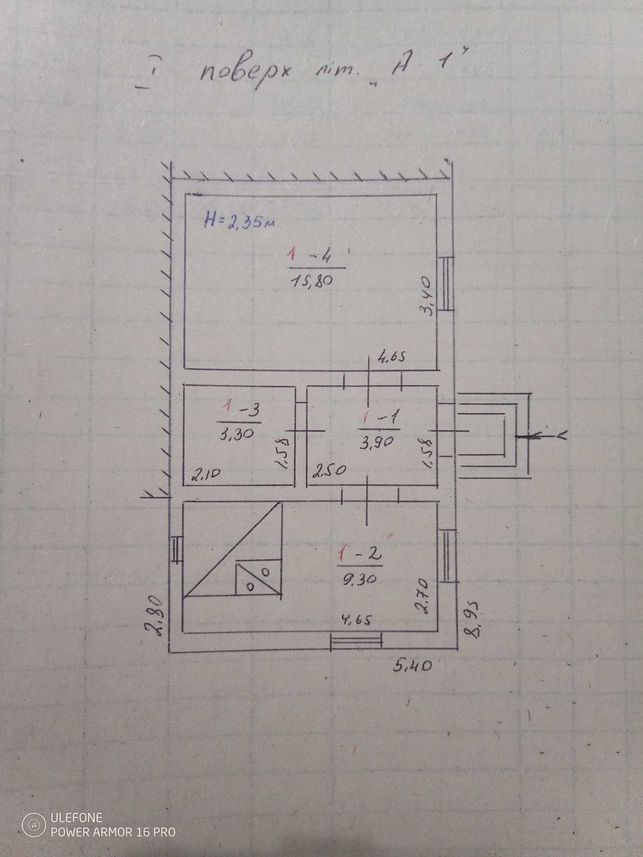 I поверх літ. "А-1"
H=2,35м
1-4
15,80
3,40
4,65
1-3
3,30
1,58
2,10
1-1
3,90
1,58
2,50
1-2
9,30
2,70
4,65
2,80
8,95
5,40
ULEFONE
POWER ARMOR 16 PRO